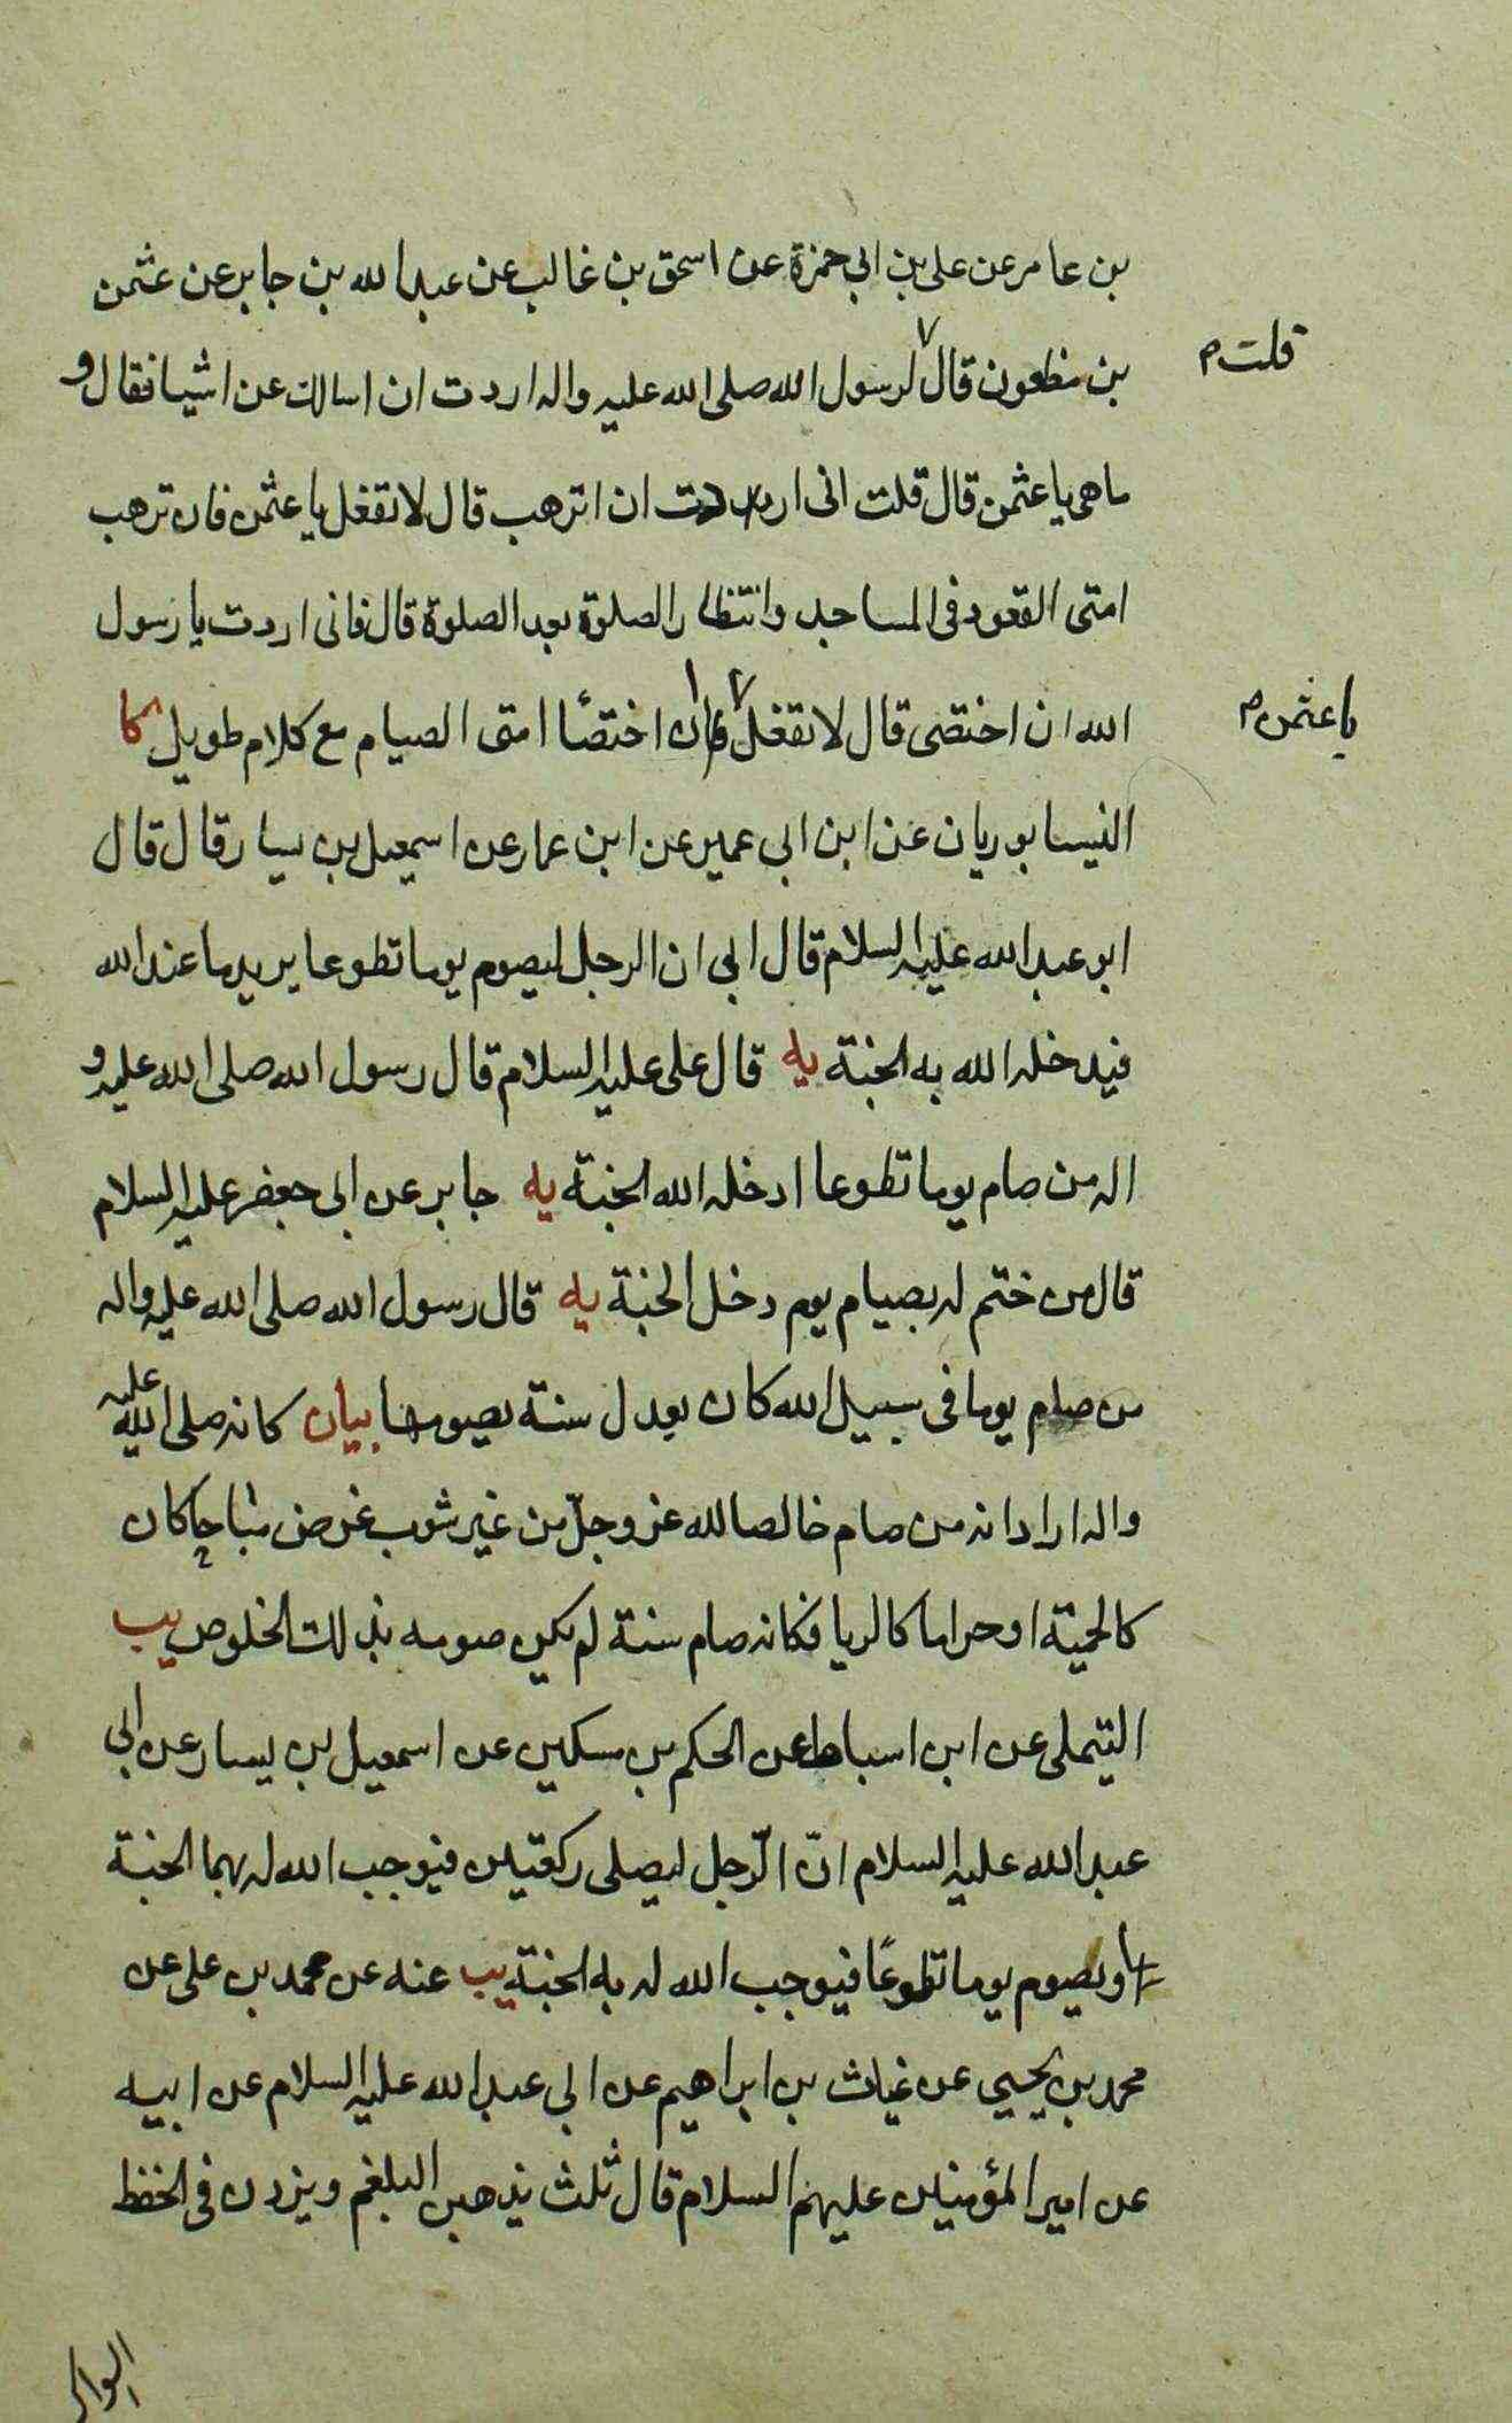 بن عامر عن علی بن ابی حمزة عن اسحق بن غالب عن عبدالله بن جابر عن عثمن
بن مظعون قال لرسول الله صلی الله علیه واله اردت ان اسالك عن اشیا فقال و
قلت م
ماهی یا عثمن قال قلت انی اردت ان اترهب قال لا تفعل یا عثمن فان ترهب
امتی القعود فی المساجد وانتظار الصلوة بعد الصلوة قال فانی اردت یا رسول
الله ان اختصی قال لا تفعل فان اختصأ امتی الصیام مع كلام طویل كا
یا عثمن م
النیسابوریان عن ابن ابی عمیر عن ابن عمار عن اسمعیل بن یسار قال قال
ابو عبدالله علیه السلام قال ابی ان الرجل لیصوم یوما تطوعا یرید ما عند الله
فیدخله الله به الجنة یه قال علی علیه السلام قال رسول الله صلی الله علیه و
اله من صام یوما تطوعا ادخله الله الجنة یه جابر عن ابی جعفر علیه السلام
قال من ختم له بصیام یوم دخل الجنة یه قال رسول الله صلی الله علیه واله
من صام یوما فی سبیل الله كان یعدل سنة یصومها بیان كانه صلی الله علیه
واله اراد انه من صام خالصا لله عز وجلّ من غیر شوب غرض مباحا كان
كالحمیة او حراما كالریا فكانه صام سنة لم یكن صومه بذلك الخلوص یب
التیملی عن ابن اسباط عن الحكم بن مسكین عن اسمعیل بن یسار عن ابی
عبدالله علیه السلام انّ الرّجل لیصلی ركعتین فیوجب الله له بهما الجنة
او یصوم یوما تطوعًا فیوجب الله له به الجنة یب عنه عن محمد بن علی عن
محمد بن یحیی عن غیاث بن ابراهیم عن ابی عبدالله علیه السلام عن ابیه
عن امیر المؤمنین علیهم السلام قال ثلث یذهبن البلغم ویزدن فی الحفظ
السواك